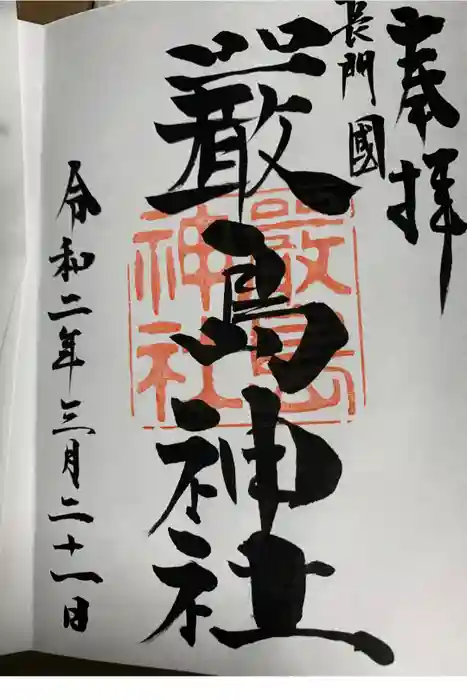 奉拝
長門國
厳島神社
嚴島
神社
令和二年三月二十一日